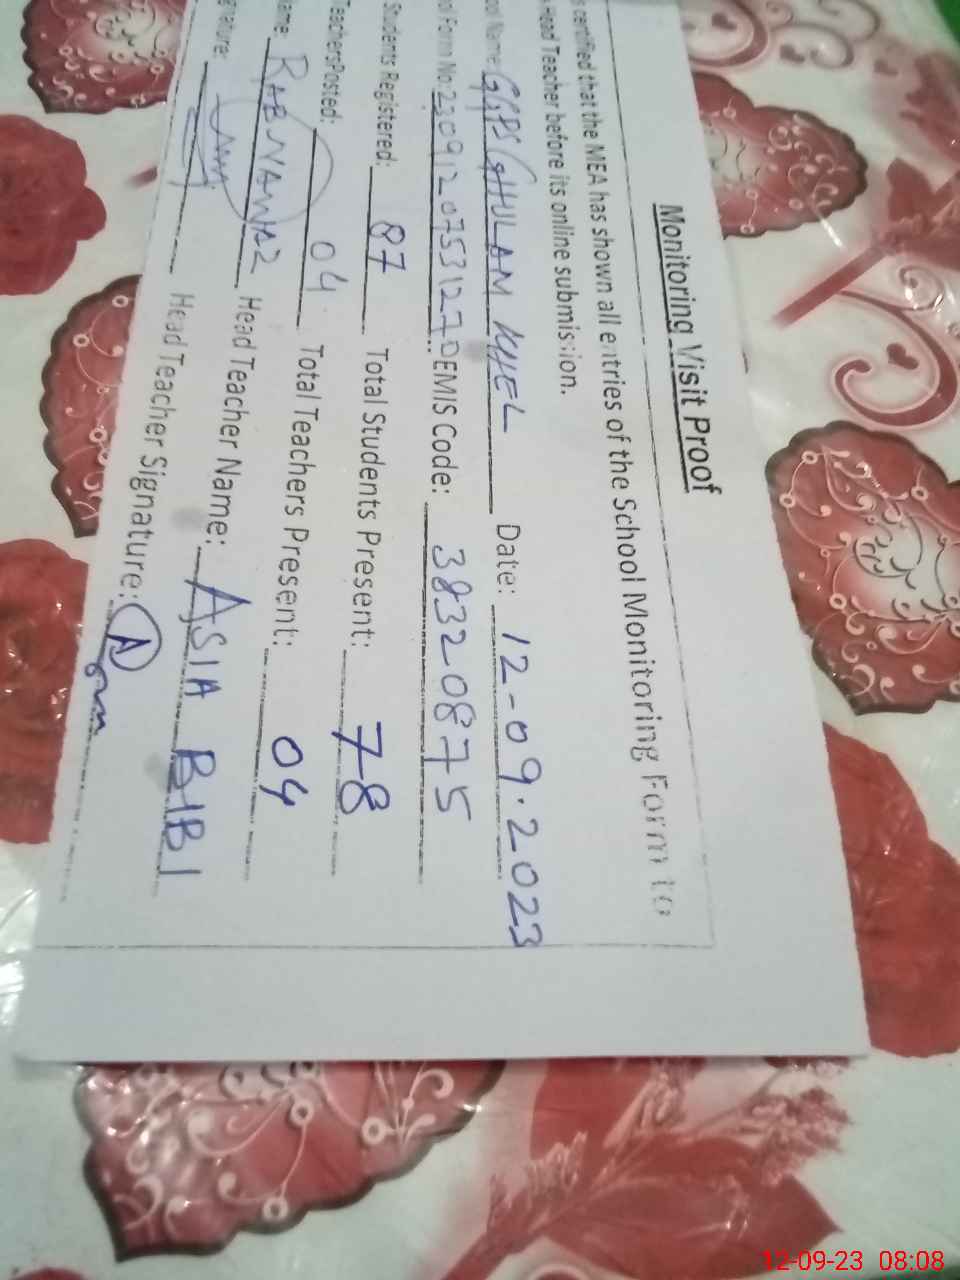 Monitoring Visit Proof
s certified that the MEA has shown all entries of the School Monitoring Form to
Head Teacher before its online submission.
Name: GGPS GHULAM KHEL Date: 12-09.2023
Form No: 23091207531270 EMIS Code: 38320875
Students Registered: 87 Total Students Present: 78
TeachersPosted: 04 Total Teachers Present: 04
ame: RAB NAWAZ Head Teacher Name: ASIA BIBI
nature: Head Teacher Signature:
12-09-23 08:08